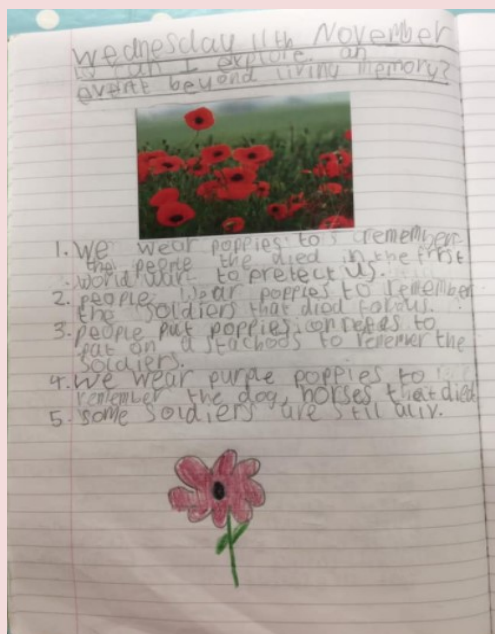 Wednesday 11th November
Can I explore an
event beyond living memory?
1. We wear poppies to remember
the people the died in the first
world war to pretect us.
2. people wear poppies to remember
the soldiers that died forous.
3. people put poppies on reees to
put on a stachoos to rememer the
soldiers.
4. We wear purple poppies to
remember the dog, horses that died
5. some soldiers are still aliv.